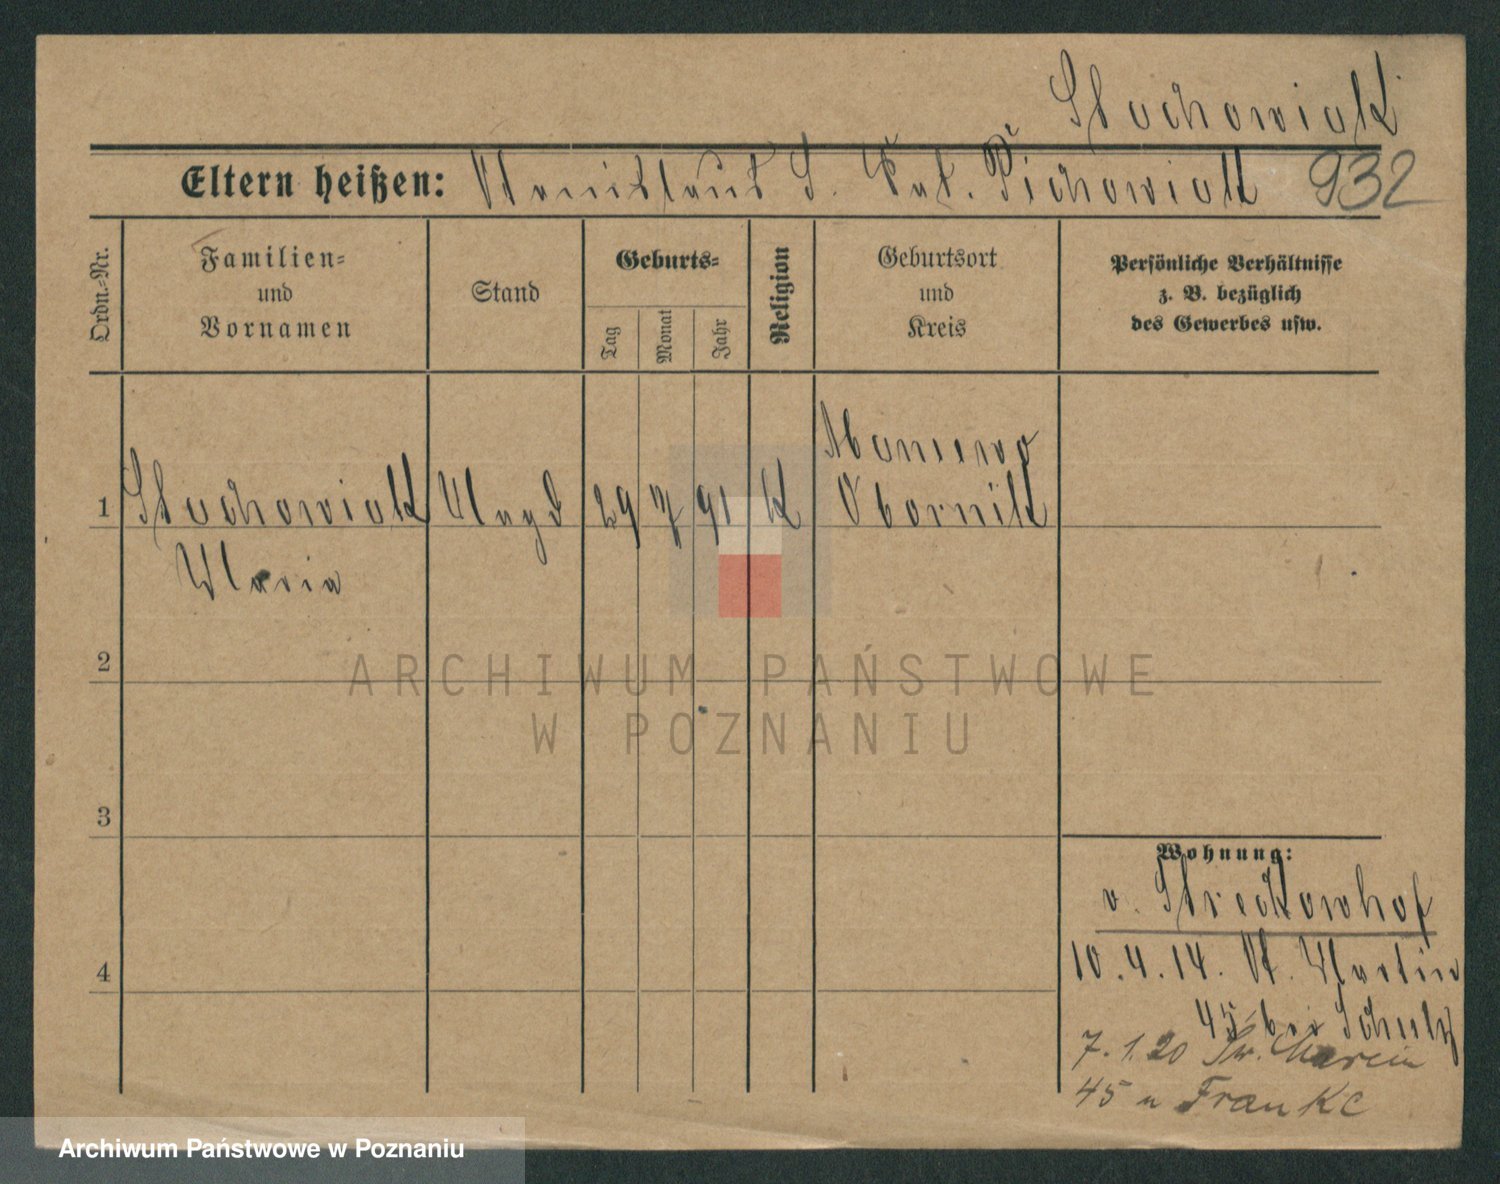 Stachowiak
Eltern heißen: Stanislaus S. Kat. Pichowiak 932
Ordn.-Nr.
Familien-
und
Vornamen
Stand
Geburts-
Tag
Monat
Jahr
Religion
Geburtsort
und
Kreis
Persönliche Verhältnisse
z. B. bezüglich
des Gewerbes usw.
Maniewo
1 Stachowiak Magd 29 7 91 K Obornik
Maria
2
3
4
Wohnung:
v. Streckowhof
10.4.14. St. Martin
45 bei Schulz
7.1.20 Św. Marcin
45 u Franke
ARCHIWUM PAŃSTWOWE
W POZNANIU
Archiwum Państwowe w Poznaniu